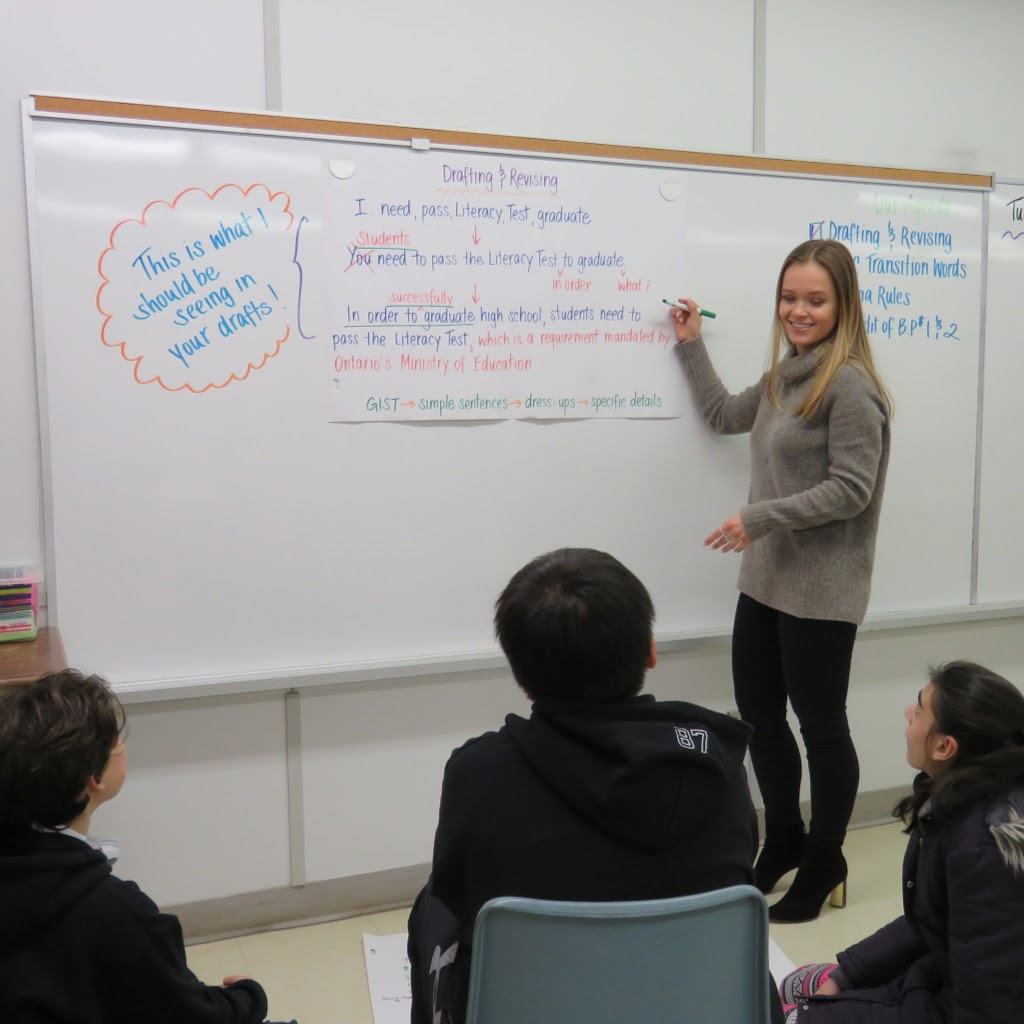 This is what I
should be
seeing in
your drafts!
Drafting & Revising
I. need, pass, Literacy, Test, graduate
Students
You need to pass the Literacy Test to graduate
in order what?
successfully
In order to graduate high school, students need to
pass the Literacy Test, which is a requirement mandated by
Ontario's Ministry of Education
GIST → simple sentences → dress-ups → specific details
Our Agenda
Drafting & Revising
Transition Words
Rules
of B.P #1 & 2
87